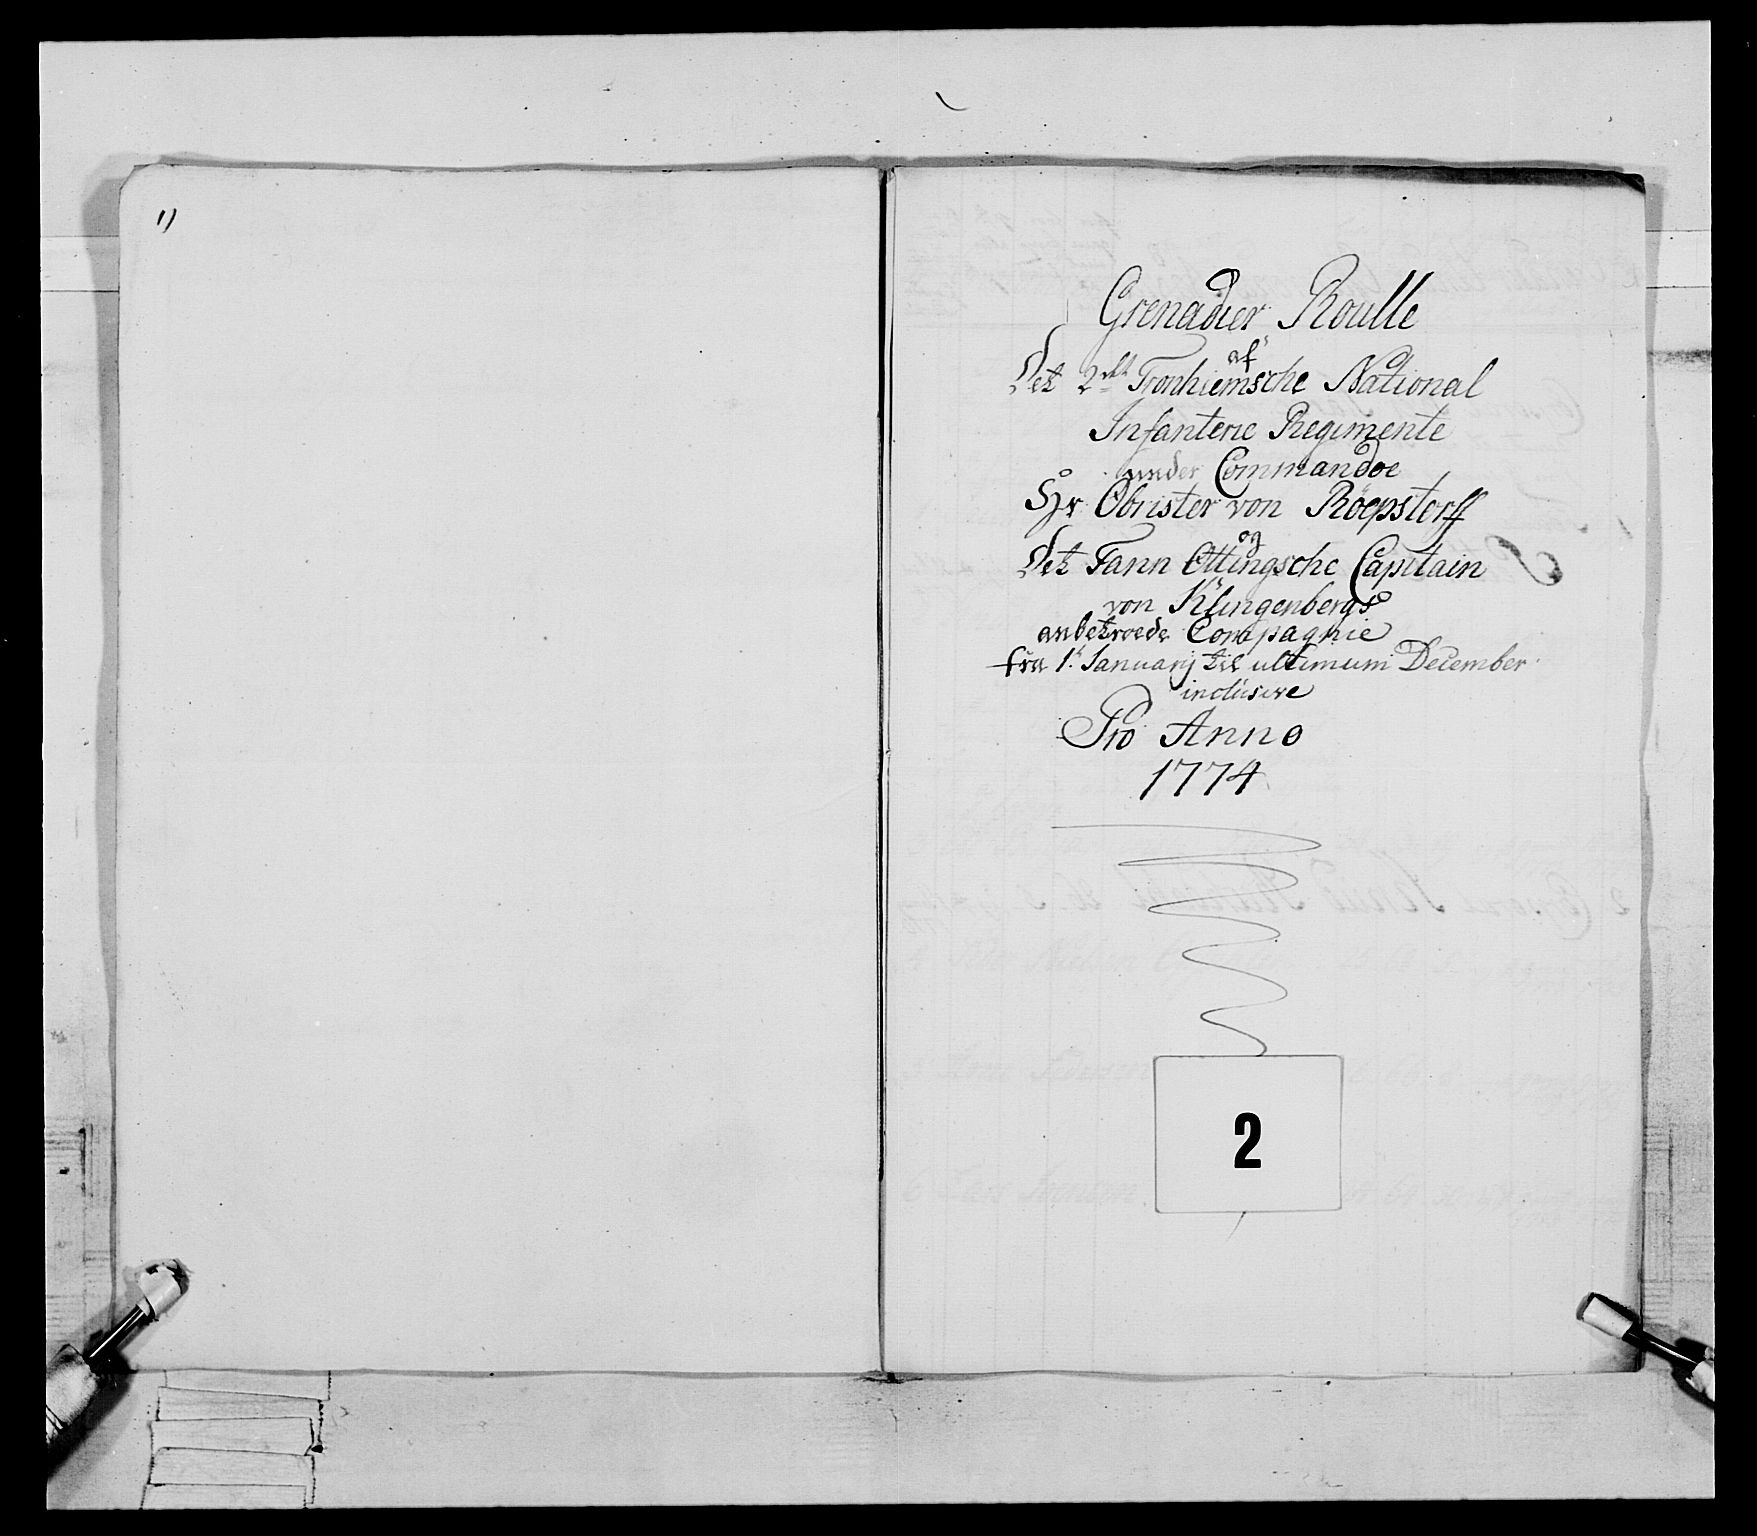 1)
Grenadier Roulle
af
Det 2det Tronhiemsche National
Infanterie Regimente
under Commandoe
Hr Obrister von Röepstorff
og
Det Fann Ottingsche Capitain
von Klingenbergs
anbetroede Compagnie
fra 1t Januarij til ultimum December
inclusive
Pro Anno
1774
2